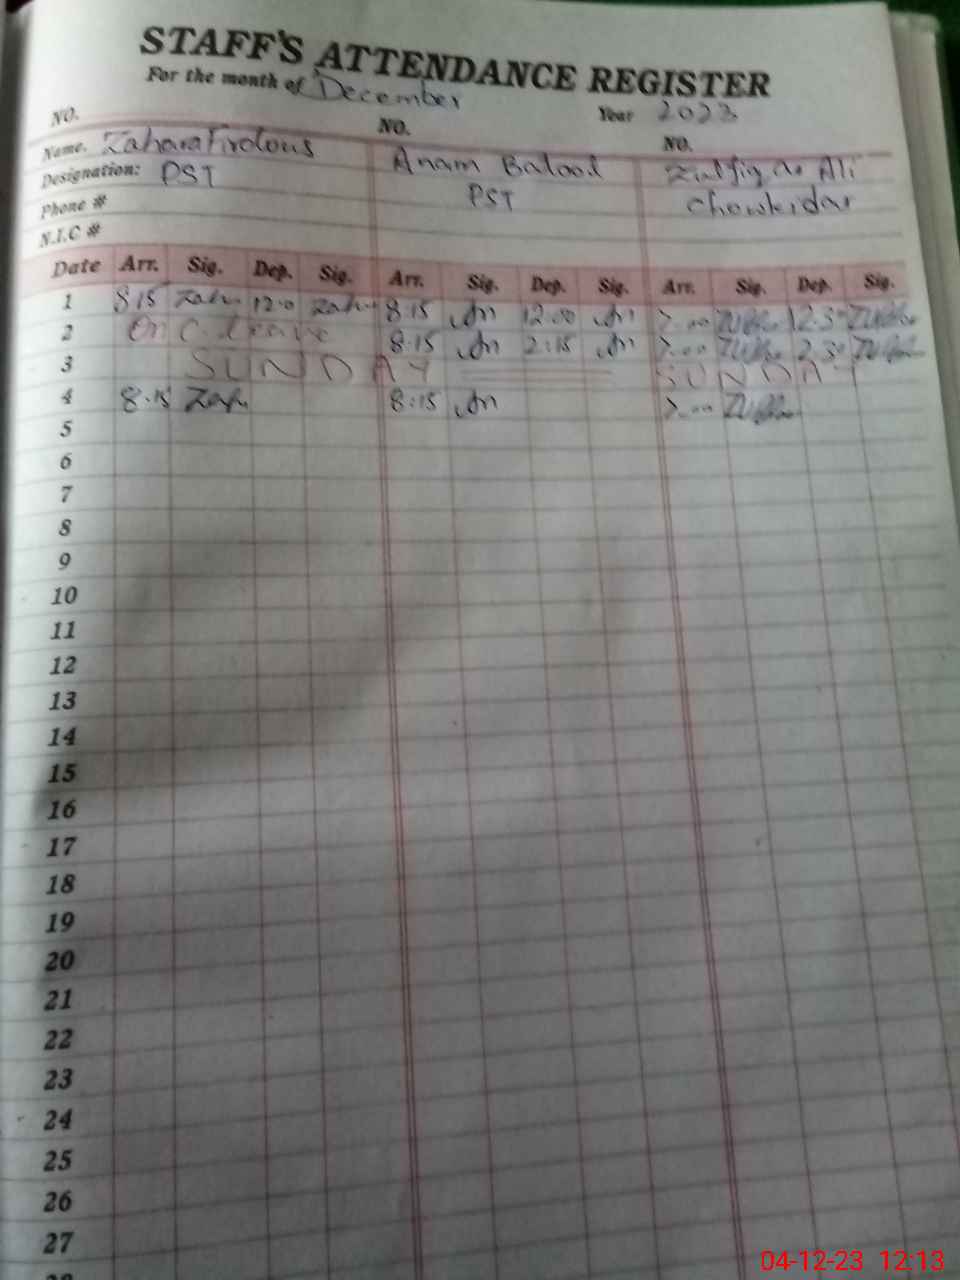 STAFF'S ATTENDANCE REGISTER
For the month of December Year 2023
NO. NO. NO.
Name. Zahara Firdous Anam Balood Zulfiqar Ali
Designation: PST PST Chowkidar
Phone #
N.I.C #
Date Arr. Sig. Dep. Sig. Arr. Sig. Dep. Sig. Arr. Sig. Dep. Sig.
1 8:15 Zah 12:0 Zah 8:15 An 12:00 An 7:00 12:30
2 On C. leave 8:15 An 2:15 An 7:00 2:30
3 SUNDAY SUNDAY
4 8:15 Zah 8:15 An 7:00
5
6
7
8
9
10
11
12
13
14
15
16
17
18
19
20
21
22
23
24
25
26
27
28
04-12-23 12:13